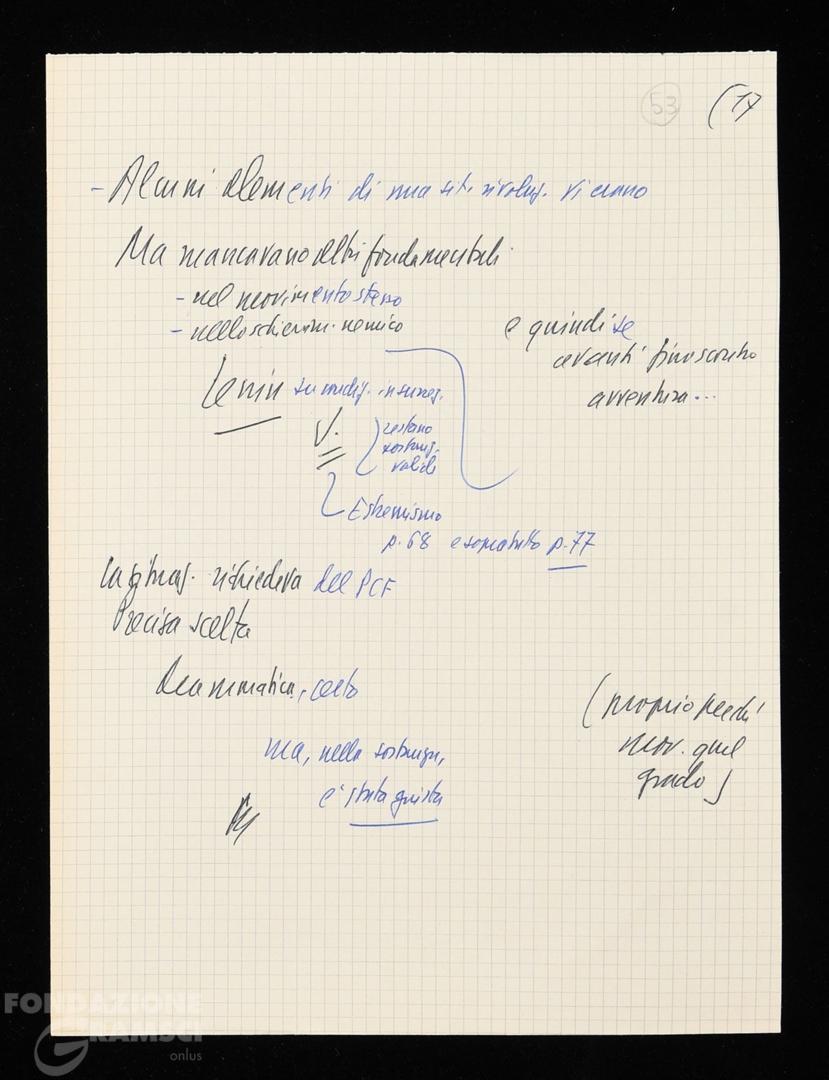 53 (17
- Alcuni elementi di una sit. rivoluz. vi erano
Ma mancavano altri fondamentali
- nel movimento stesso
- nello schieram. nemico
e quindi se
avanti fino scontro
avventura...
Lenin su condiz. insurrez.
V.
restano
sostanz.
valide
Estremismo
p. 68 e soprattutto p. 77
La situaz. richiedeva del PCF
Precisa scelta
Drammatica, certo
(proprio perché
mov. quel
grado)
ma, nella sostanza,
è stata giusta
FONDAZIONE
GRAMSCI
onlus